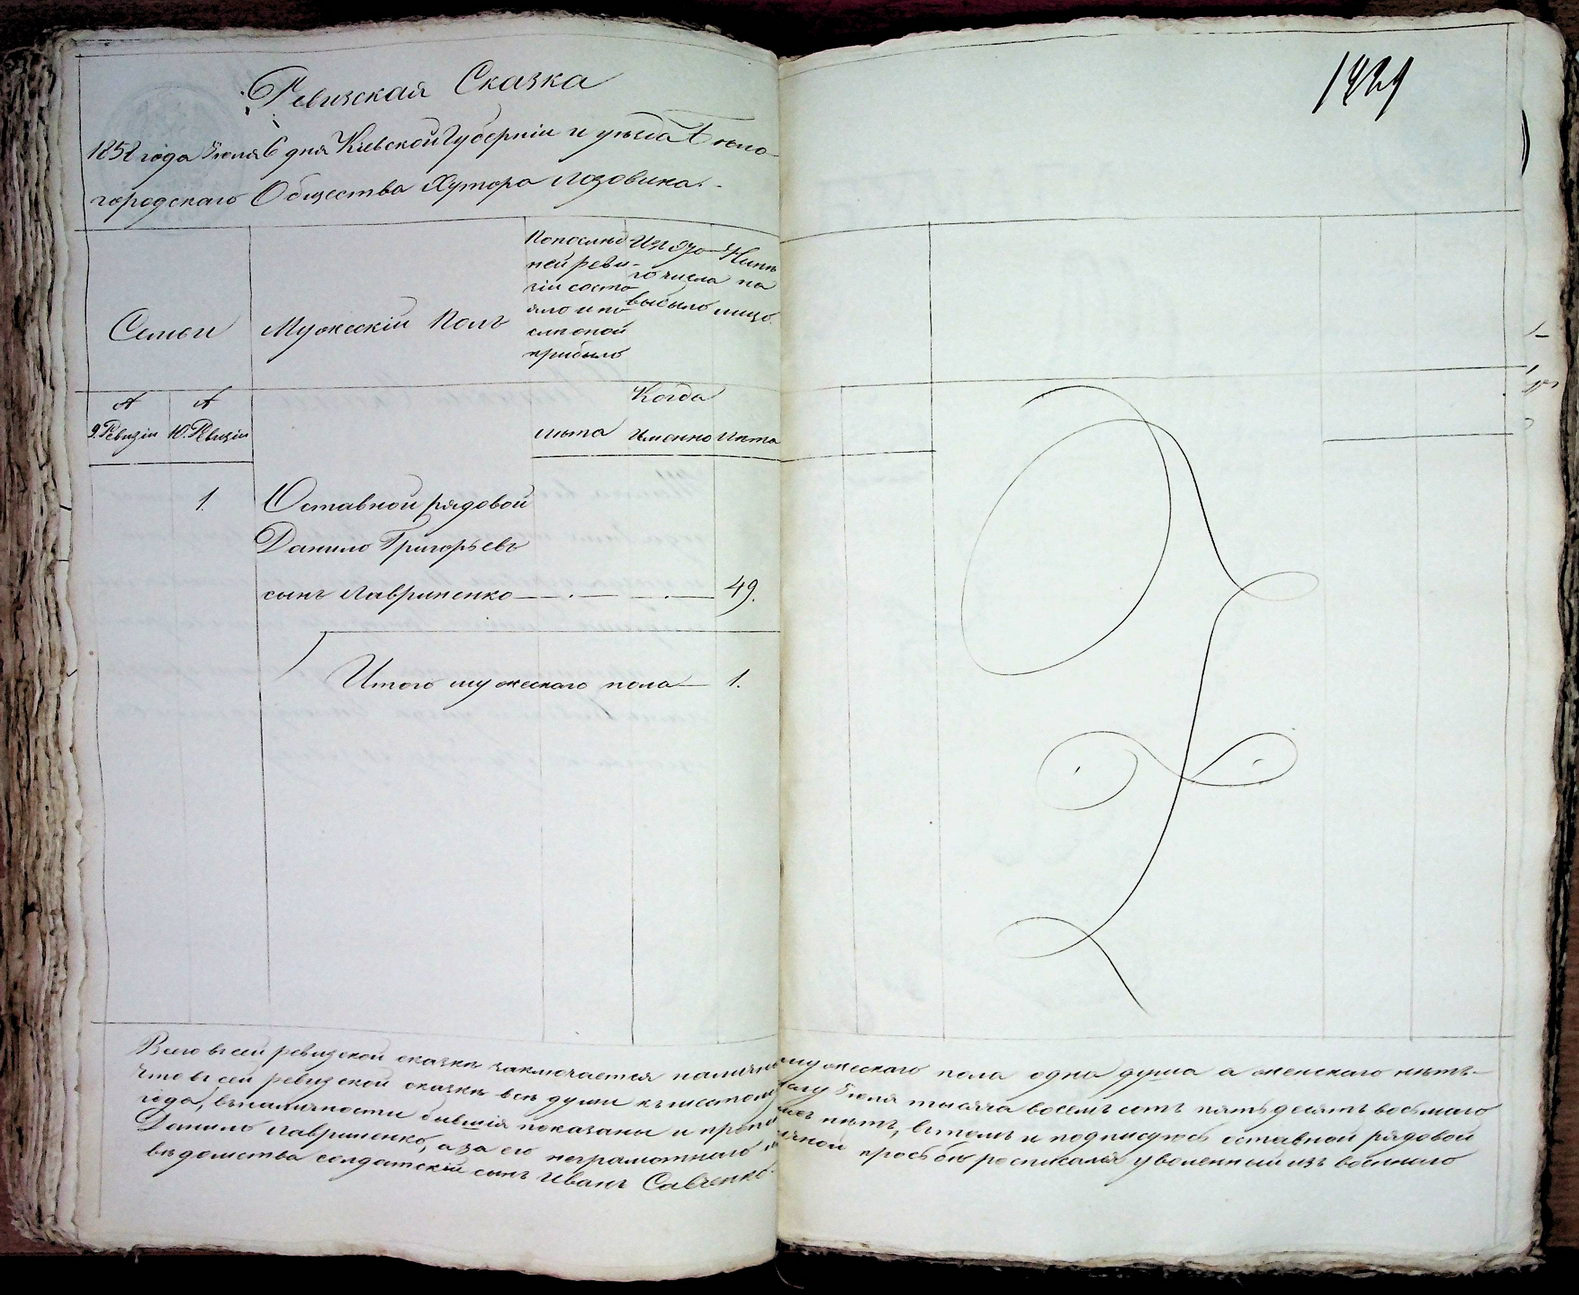 1421
Ревизская Сказка
1858 года Июля 6 дня Кіевской Губерніи и уѣзда Бѣло-
городскаго Общества Хутора Лозовика.
Семьи
Мужескій Полъ
По послѣд
ней реви-
зіи состо
яло и по-
слѣ оной
прибыло
Изъ то-
го числа
выбыло
Нынѣ
на
лицо.
№ 9. Ревизіи
№ 10. Ревизіи
лѣта
Когда
именно
лѣта
1.
Оставной рядовой
Данило Григорьевъ
сынъ Лавриненко 49.
Итого мужескаго пола 1.
Всего въ сей ревизской сказкѣ заключается налично мужескаго пола одна душа а женскаго нѣтъ
что въ сей ревизской сказкѣ всѣ души къ шестому Іюля тысяча восемь сотъ пятьдесятъ восьмаго
года, въ наличности бывшія показаны и нѣтъ, въ томъ и подписуюсь оставной рядовой
Данило Лавриненко, а за его неграмотнаго личной просьбою росписался уволенный изъ военнаго
вѣдомства солдатскій сынъ Иванъ Савченко